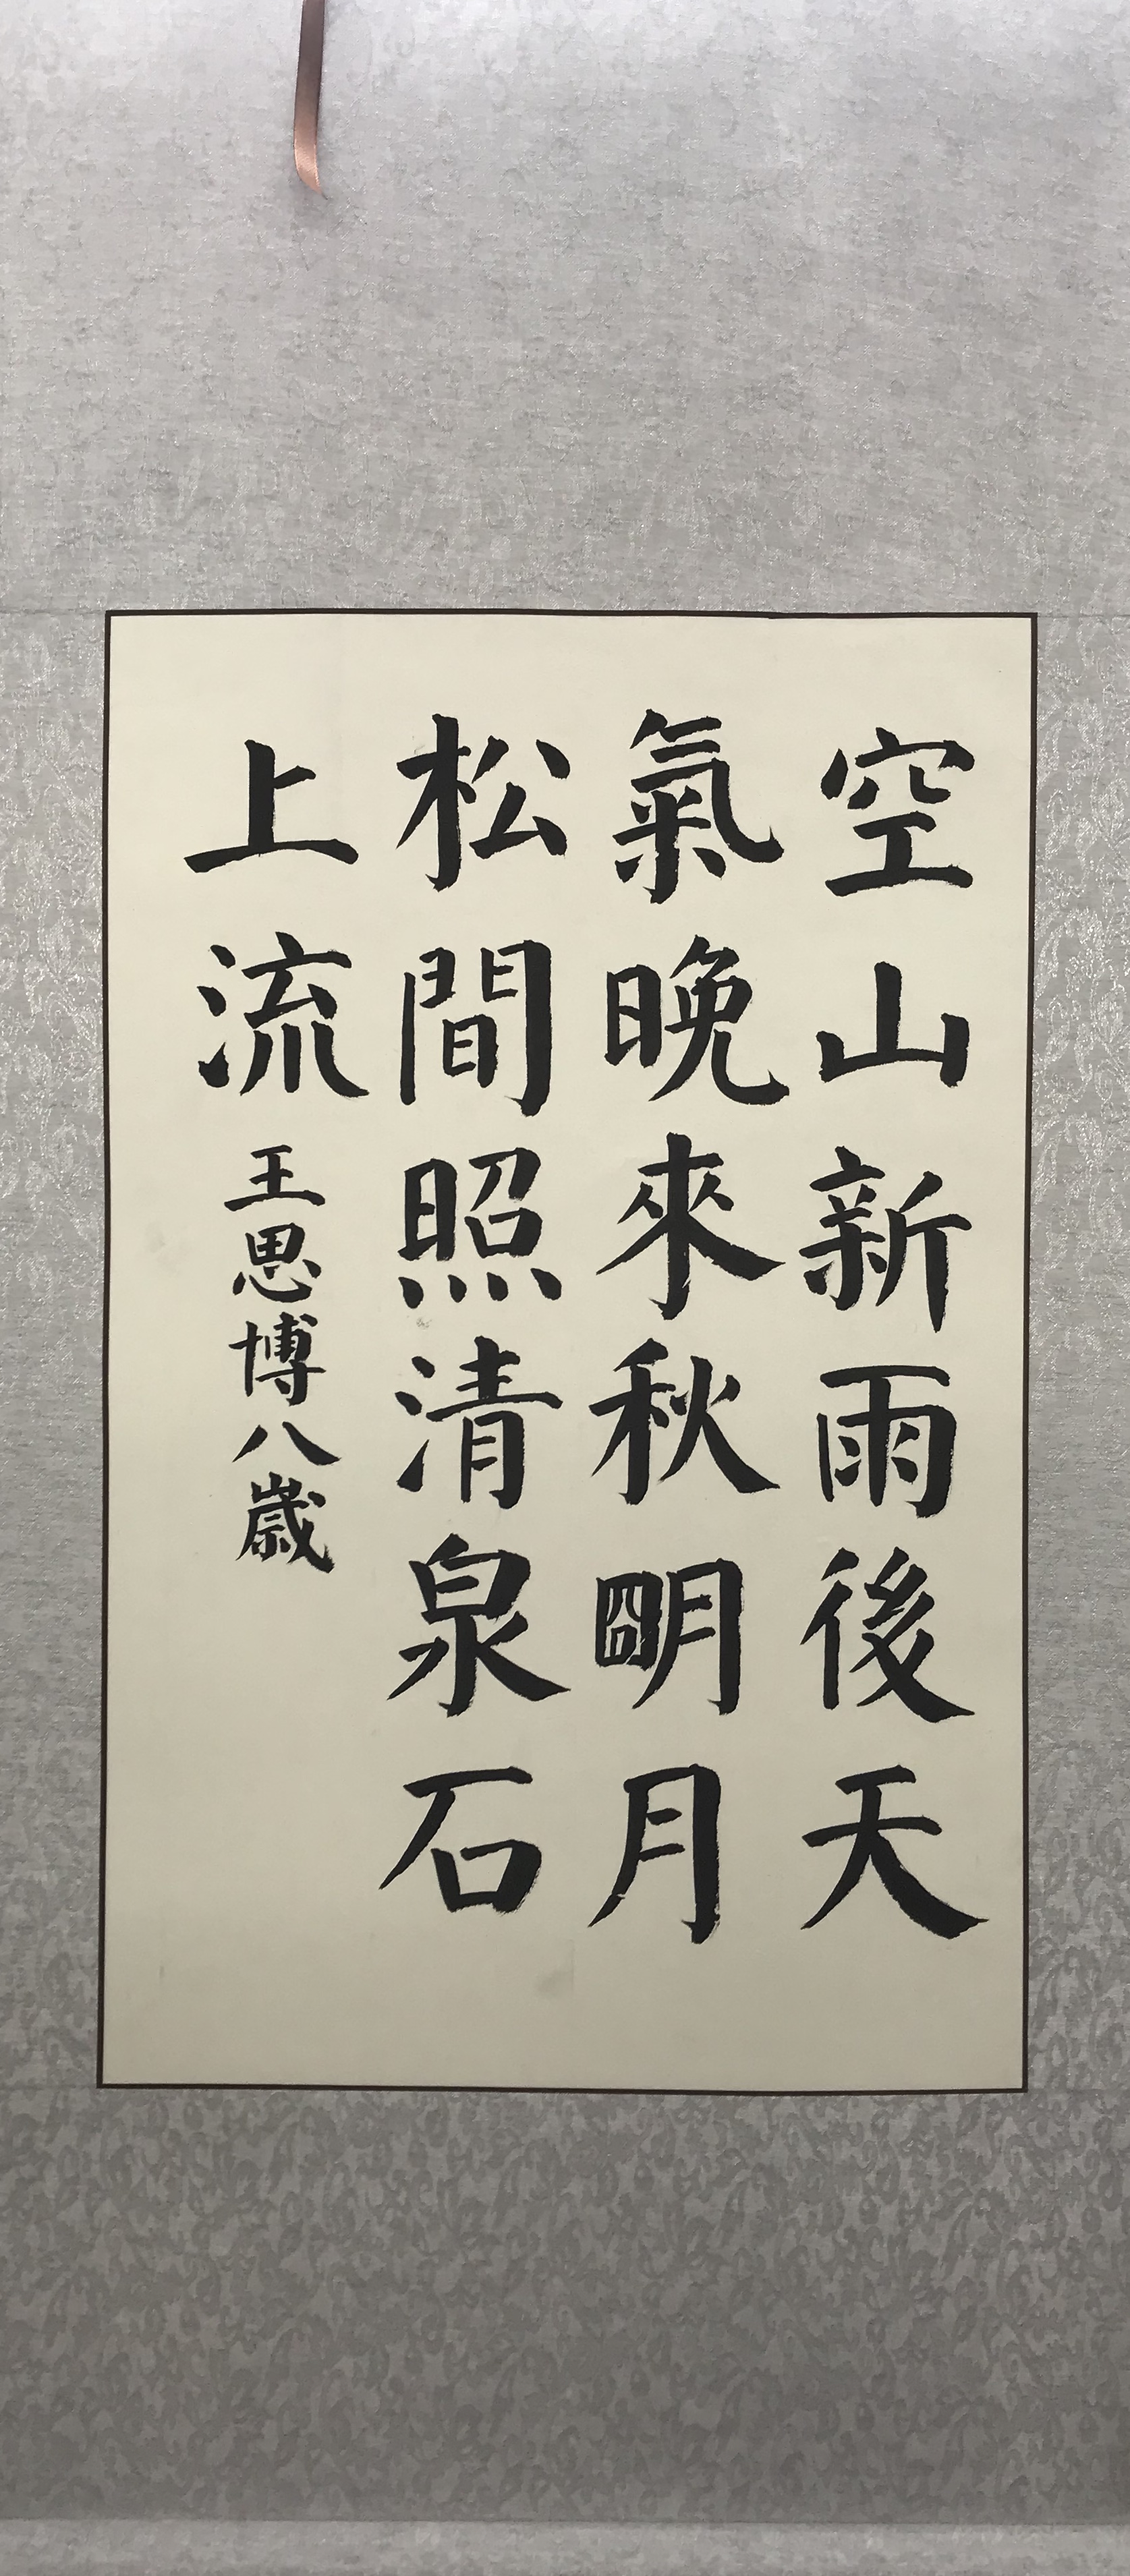 空山新雨後天
氣晚來秋朙月
松間照清泉石
上流
王思博八歲